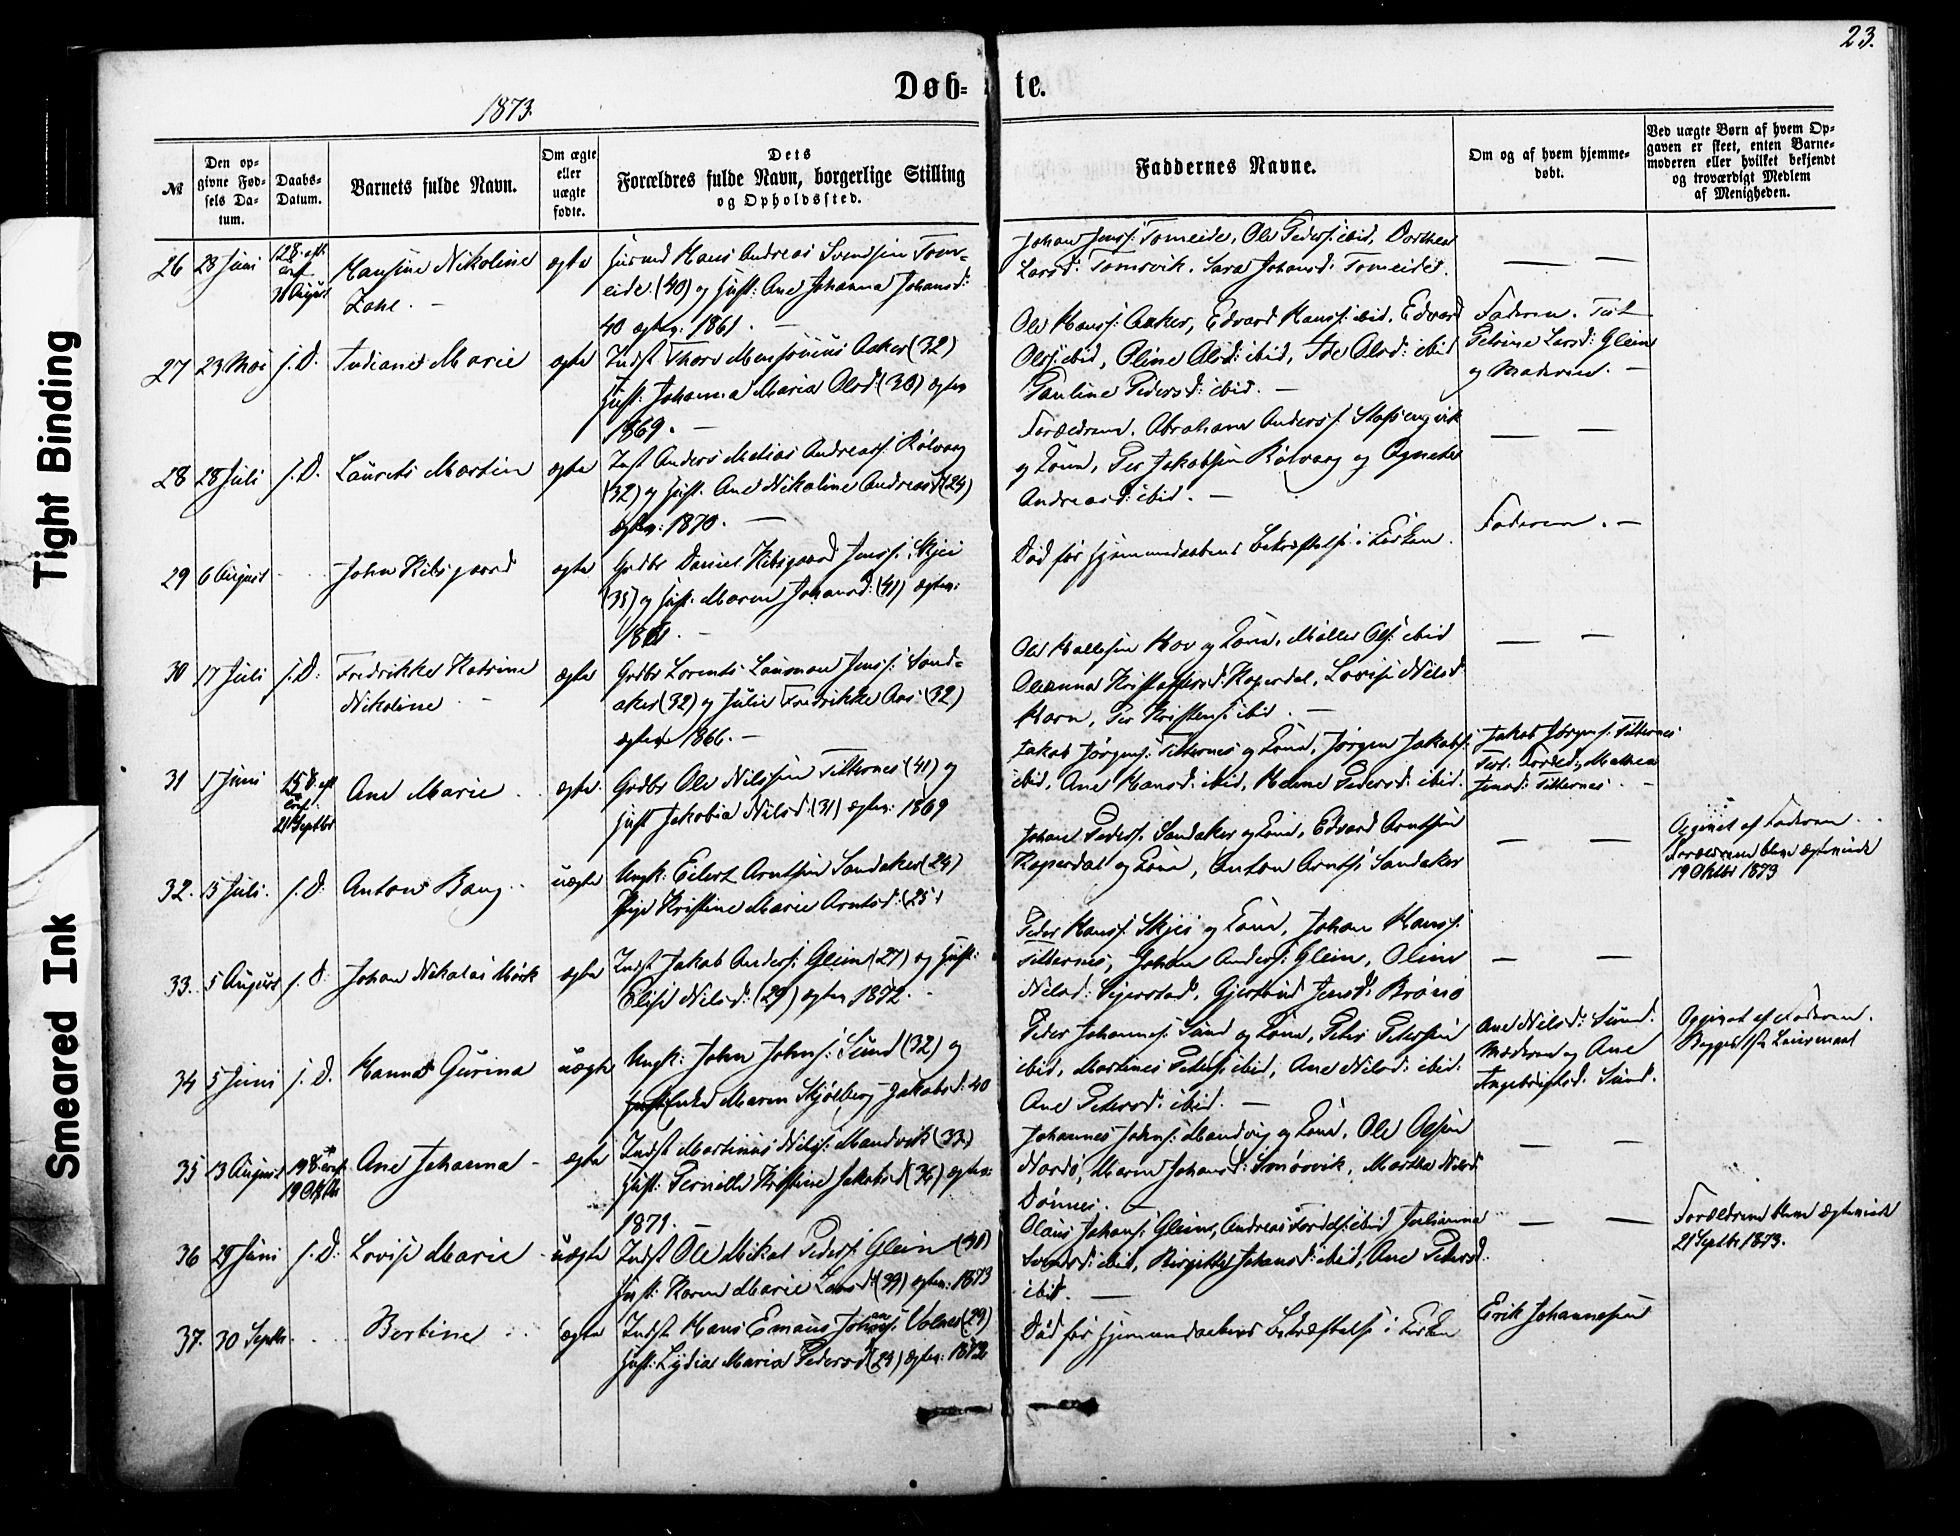 23.
Døb-
te.
1873.
№
Den op-
givne Fød-
sels Da-
tum.
Daabs-
Datum.
Barnets fulde Navn.
Om ægte
eller
uægte
fødte.
Dets
Forældres fulde Navn, borgerlige Stilling
og Opholdssted.
Faddernes Navne.
Om og af hvem hjemme-
døbt.
Ved uægte Børn af hvem Op-
gaven er skeet, enten Barne-
moderen eller hvilket bekjendt
og troværdigt Medlem
af Menigheden.
26 28 Juni
31 August
Hansine Nikoline
Zahl.
ægte
Hans Andreas Svendsen Tom-
eide (40) og Hust: Ane Johanna Johansd:
40 egtev: 1861.
Johan Jenss: Tomeide, Ole Peders: ibid, Dorthea
Larsd: Tomsvik. Sara Johansd: Tomeide.
27 23 Mai s. D. Indiane Marie ægte
Indst Thore Monsønius Aaker (32)
Hust: Johanna Maria Olsd (30) egtev
1869.
Ole Hanss: Aaker, Edvard Hanss: ibid. Edvard
Olss: ibid, Oline Olsd: ibid, Ide Olsd: ibid
Pauline Pedersd: ibid.
Faderen. Test
Petrine Larsd: Glein
og Moderen.
28 28 Juli s. D. Laurits Martin ægte
Indst Anders Matias Andreass: Rølvaag
(32) og Hust. Ane Nikoline Andreasd (24)
egtev: 1870.
Forældrene. Abraham Anderss: Stafsengvik
og Kone, Per Jakobsen Rølvaag og Agnethe
Andreasd: ibid.
29 6 August John Hilsgaard ægte
Grdbr Daniel Hilsgaard Jenss: Skjei
(35) og Hust. Maren Johansd: (41) egtev:
1861.
Død før Hjemmedaabens Bekræftelse i Kirken.
Faderen.
30 17 Juli s. D. Fredrikke Katrine
Nikoline
ægte
Grdbr Lorents Lausman Jenss: Sand-
aker (32) og Julie Fredrikke Aas (32)
egtev 1866.
Ole Hallesen Hov og Kone, Møller Ols: ibid
Oleanna Kristoffersd: Koperdal, Lovise Nilsd
Horn, Per Kristens: ibid.
31 1 Juni
21 Septbr
Ane Marie ægte
Grdbr Ole Nilssen Titternes (41) og
Hust Jakobia Nilsd (31) egtev: 1869
Jakob Jørgens: Titternes og Kone, Jørgen Jakobs:
ibid, Ane Hansd: ibid, Helene Pedersd: ibid.
Jakob Jørgens: Titternes
Test: Forældr, Mathea
Jensd: Titternes.
32. 13 Juli. s. D. Anton Bang uægte
Ungk: Eilert Arntsen Sandaker (24)
Pige Kristine Marie Arntsd: (25)
Johan Peders: Sandaker og Kone, Edvard Arntsen
Koperdal og Kone, Anton Arnts: Sandaker
Opgivet af Faderen.
Forældrene bleve egteviede
19 Oktbr 1873
33. 5 August s. D. Johan Nikolai Mørk ægte
Indst Jakob Anders: Glein (27) og Hust:
Elise Nilsd: (29) egtev 1872.
Peder Hanss: Skjei og Kone, Johan Hanss:
Titternes, Johan Anders: Glein, Oline
Nilsd: Seierstad, Gjertrud Jensd: Brønø
34 5 Juni s. D. Hanna Gurina uægte
Ungk: John Johns: Sund (32) og
Enke Maren Skjølberg Jakobsd: 40
Peder Johannes: Sund og Kone, Peter Petersen
ibid, Martines Peders: ibid, Ane Nilsd: ibid:
Ane Petersd: ibid.
Ane Nilsd: Sund.
Moderen og Ane
Ingebrigtsd: Sund.
Opgivet af Faderen.
Begges 1ste Leiermaal
35 13 August
19 Oktbr
Ane Johanna ægte
Indst Martinus Nilss: Mandvik (33)
Hust: Pernille Kristine Jakobsd (36) egtev:
1871.
Johannes Johns: Mandvig og Kone, Ole Olsen
Nordø, Maren Johansd: Smørvik, Martha Nilsd:
Dønnes.
36 29 Juni s. D: Lovise Marie uægte
Indst Ole Mikal Peders: Glein (40)
Hust: Karen Marie Larsd (39) egtev: 1873
Olaus Johans: Glein, Andreas Tordels: ibid Julianna
Svendsd: ibid, Birgitte Johansd: ibid, Ane Petersd.
ibid.
Forældrene bleve egteviede
21 Septbr. 1873.
37. 30 Septbr Bertine ægte
Indst Hans Emaus Johans: Volnes (29)
Hust: Lydia Maria Pedersd (24) egtev: 1872
Død før Hjemmedaabens Bekræftelse i Kirken
Erik Johannesen
Tight Binding
Smeared Ink